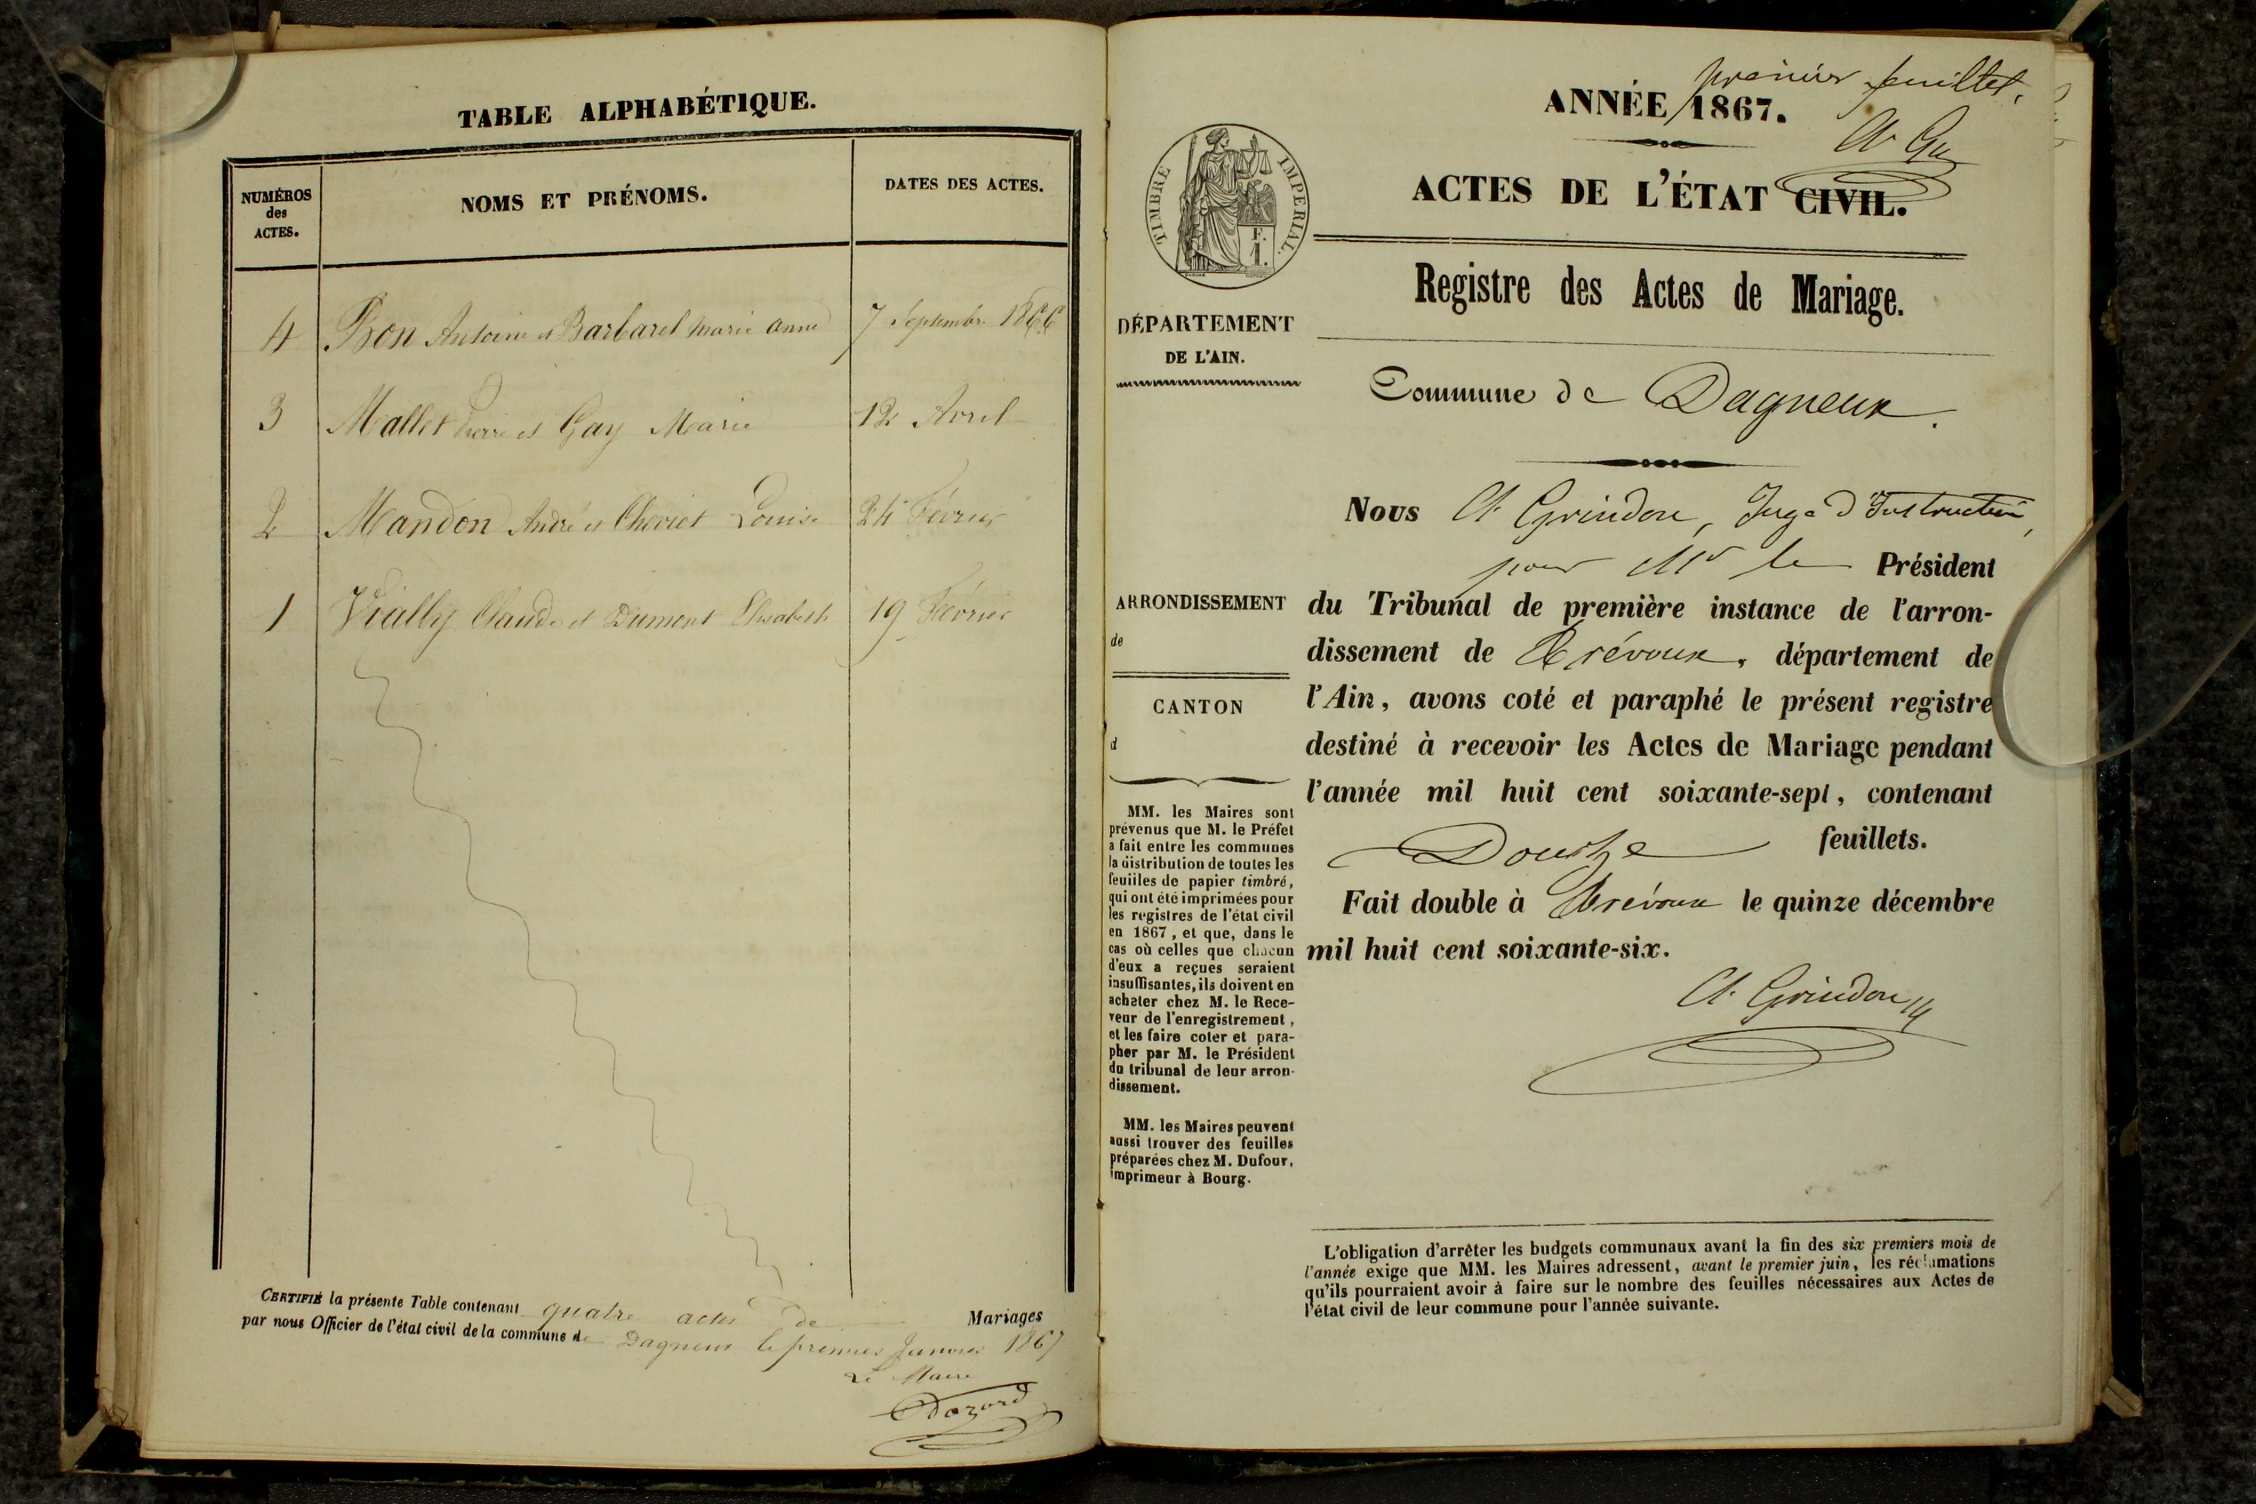 TABLE ALPHABÉTIQUE.
NUMÉROS
des
ACTES.
NOMS ET PRÉNOMS.
DATES DES ACTES.
4 Bon Antoine et Barbaret Marie Anne 7 Septembre 1866
3 Mallet Pierre et Gay Marie 12 Avril
2 Mandon André et Cheviet Louise 24 Février
1 Vially Claude et Dumont Elisabeth 19 Février
CERTIFIÉ la présente Table contenant quatre actes de Mariages
par nous Officier de l'état civil de la commune de Dagneux le premier Janvier 1867
Le Maire
premier feuillet.
ANNÉE 1867.
ACTES DE L'ÉTAT CIVIL.
TIMBRE IMPERIAL.
F.
1.
Registre des Actes de Mariage.
DÉPARTEMENT
DE L'AIN.
Commune de Dagneux.
Nous Ch Grindon, Juge d'Instruction,
pour Mr le Président
du Tribunal de première instance de l'arron-
dissement de Trévoux, département de
l'Ain, avons coté et paraphé le présent registre
destiné à recevoir les Actes de Mariage pendant
l'année mil huit cent soixante-sept, contenant
Douze feuillets.
Fait double à Trévoux le quinze décembre
mil huit cent soixante-six.
Ch. Grindon
ARRONDISSEMENT
de
CANTON
d
MM. les Maires sont
prévenus que M. le Préfet
a fait entre les communes
la distribution de toutes les
feuilles de papier timbré,
qui ont été imprimées pour
les registres de l'état civil
en 1867, et que, dans le
cas où celles que chacun
d'eux a reçues seraient
insuffisantes, ils doivent en
acheter chez M. le Rece-
veur de l'enregistrement,
et les faire coter et para-
pher par M. le Président
du tribunal de leur arron-
dissement.
MM. les Maires peuvent
aussi trouver des feuilles
préparées chez M. Dufour,
imprimeur à Bourg.
L'obligation d'arrêter les budgets communaux avant la fin des six premiers mois de
l'année exige que MM. les Maires adressent, avant le premier juin, les réclamations
qu'ils pourraient avoir à faire sur le nombre des feuilles nécessaires aux Actes de
l'état civil de leur commune pour l'année suivante.